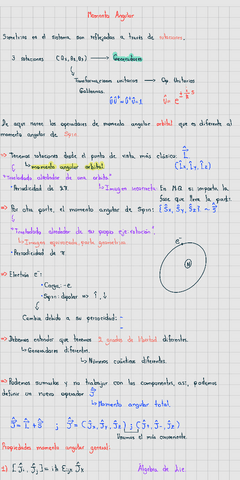 Momento Angular
Simetrías en el sistema son reflejadas a través de rotaciones.
3 rotaciones (θ₁, θ₂, θ₃) → Generadores
Transformaciones unitarias → Op. Unitarios
Galileanas.
de aquí nacen los operadores de momento angular orbital que es diferente al
momento angular de Spin.
⇒ Tenemos rotaciones desde el punto de vista más clásico: L̂
↳ momento angular orbital. (L̂x, L̂y, L̂z)
"Trasladado alrededor de una órbita"
· Periodicidad de 2π. ↳ Imagen incorrecta. En M.Q. sí importa la
fase que lleva la part.
⇒ Por otra parte, el momento angular de Spin: {Ŝx, Ŝy, Ŝz} → Ŝ
"Trasladado alrededor de su propio eje rotación".
↳ Imagen equivocada, parte geométrica.
· Periodicidad de π.
e⁻
N
⇒ Electrón e⁻:
· Carga: -e
· Spin: dipolar ⇒ ↑, ↓
Cambia debido a su periodicidad:
⇒ Debemos entender que tenemos 2 grados de libertad diferentes.
↳ Generadores diferentes.
↳ Números cuánticos diferentes.
⇒ Podemos sumarlos y no trabajar con las componentes, así, podemos
definir un nuevo operador Ĵ
↳ Momento angular total.
Ĵ = L̂ + Ŝ ; Ĵ = (Ĵx, Ĵy, Ĵz) ; (Ĵ+, Ĵ-, Ĵz)
Usamos el más conveniente.
Propiedades momento angular general:
1) [Ĵi, Ĵj] = iħ Eijk Ĵk Álgebra de Lie